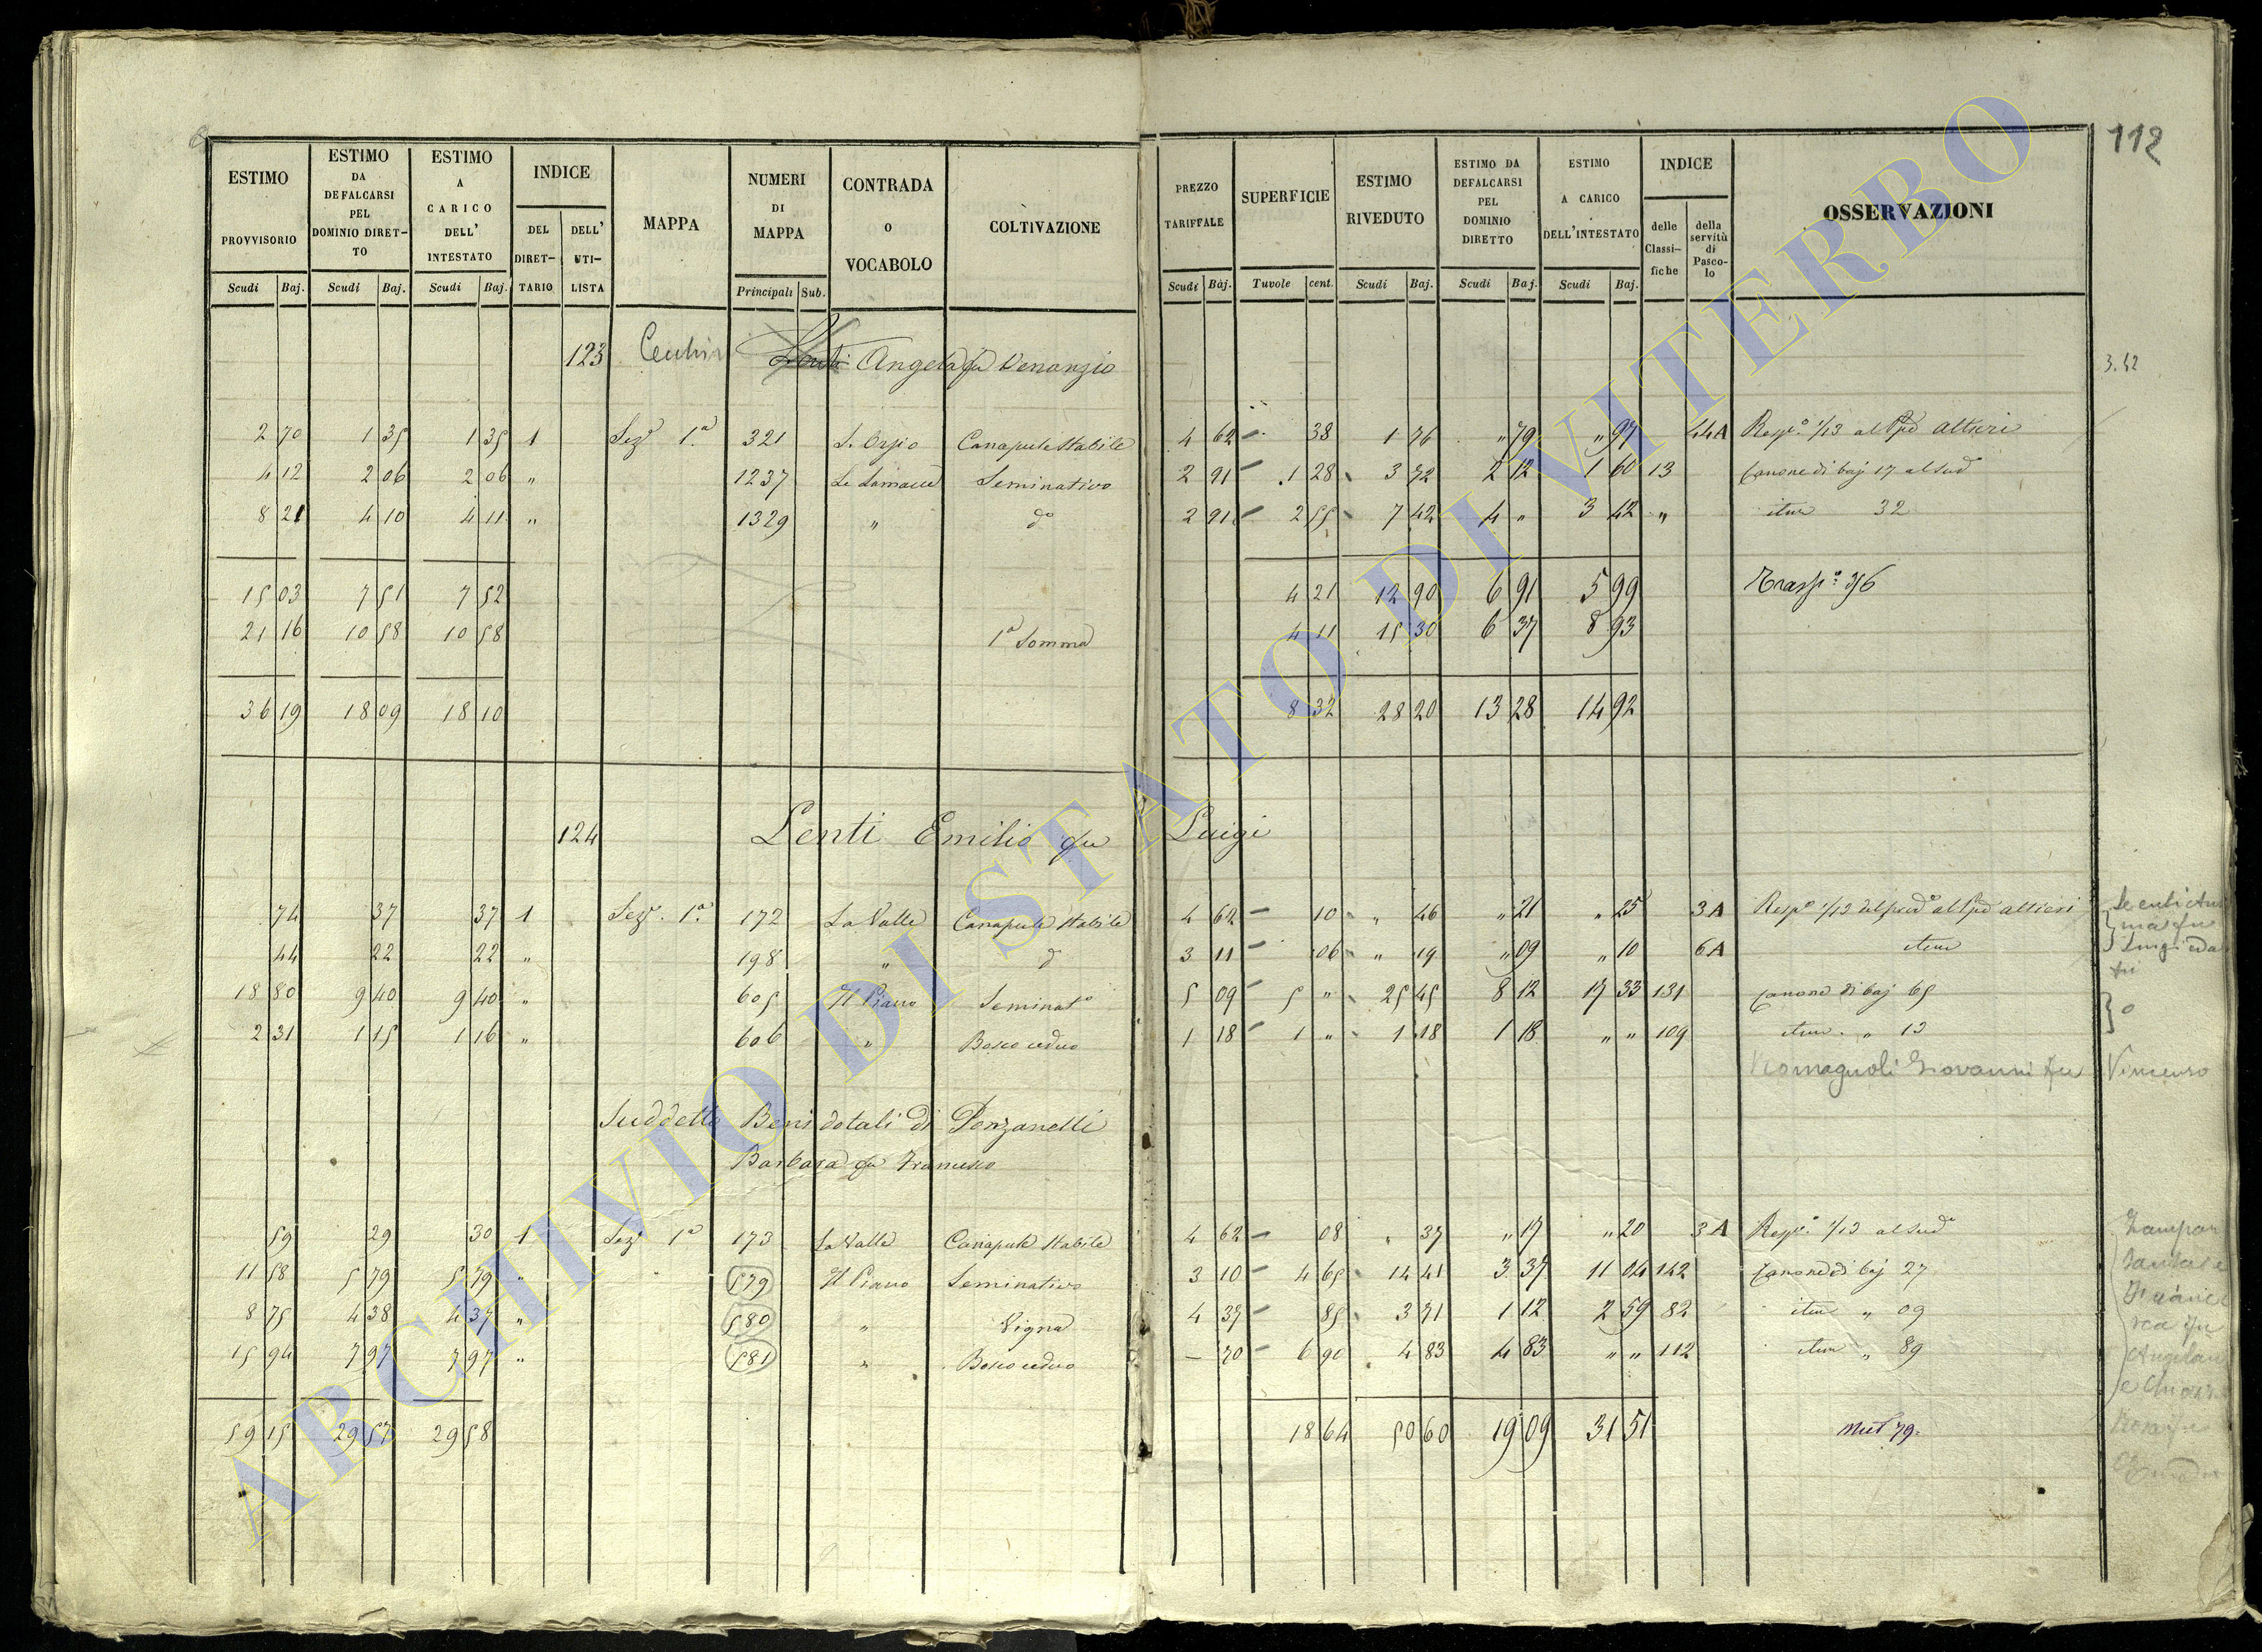 112
ESTIMO PROVVISORIO | ESTIMO DA DEFALCARSI PEL DOMINIO DIRETTO | ESTIMO A CARICO DELL' INTESTATO | INDICE | MAPPA | NUMERI DI MAPPA | CONTRADA o VOCABOLO | COLTIVAZIONE | PREZZO TARIFFALE | SUPERFICIE | ESTIMO RIVEDUTO | ESTIMO DA DEFALCARSI PEL DOMINIO DIRETTO | ESTIMO A CARICO DELL'INTESTATO | INDICE | OSSERVAZIONI
DEL DIRETTARIO | DELL' UTILISTA | delle Classifiche | della servitù di Pascolo
Scudi Baj. | Scudi Baj. | Scudi Baj. | Principali Sub. | Scudi Baj. | Tavole cent. | Scudi Baj. | Scudi Baj. | Scudi Baj.
123 Angela fu Venanzio 3.42
2 70 1 35 1 35 1 Sez.e 1.a 321 S. Orsio Canapule Stabile 4 62 38 1 76 " 79 " 97 44A Resp.a 1/13 al Altieri
4 12 2 06 2 06 " 1237 Le Seminativo 2 91 1 28 3 72 2 12 1 60 13 Canone di baj 17 al Sud
8 21 4 10 4 11 " 1329 " do 2 91 2 55 7 42 4 " 3 42 " item 32
15 03 7 51 7 52 4 21 12 90 6 91 5 99 Trasp.o 36
21 16 10 58 10 58 1a Somma 4 11 15 30 6 37 8 93
36 19 18 09 18 10 8 32 28 20 13 28 14 92
124 Lenti Emilio fu Luigi
74 37 37 1 Sez.e 1.a 172 La Valle Canapule Stabile 4 62 10 " 46 " 21 " 25 3A Resp.a 1/13 del pred.o al Altieri
44 22 22 " 198 " do 3 11 06 " 19 " 09 " 10 6A item
18 80 9 40 9 40 " 605 Il Piano Seminat.o 5 09 5 " 25 45 8 12 17 33 131 Canone di baj 65
2 31 1 15 1 16 " 606 " Bosco ceduo 1 18 1 " 1 18 1 18 " " 109 item " 13
Romagnoli Giovanni fu Vincenzo
Suddetto Beni dotali di Ponzanelli
Barbara fu Francesco
59 29 30 1 Sez.e 1a 173 La Valle Canapule Stabile 4 62 08 " 37 " 17 " 20 3A Resp.a 1/13 al Sud.o
11 58 5 79 5 79 " 579 Il Piano Seminativo 3 10 4 65 14 41 3 37 11 04 142 Canone di baj 27
8 75 4 38 4 37 " 580 " Vigna 4 37 85 3 71 1 12 2 59 82 item " 09
15 94 7 97 7 97 " 581 " Bosco ceduo 70 6 90 4 83 4 83 " " 112 item " 89
59 15 29 57 29 58 18 64 50 60 19 09 31 51 Mut 79.
ARCHIVIO DI STATO DI VITERBO